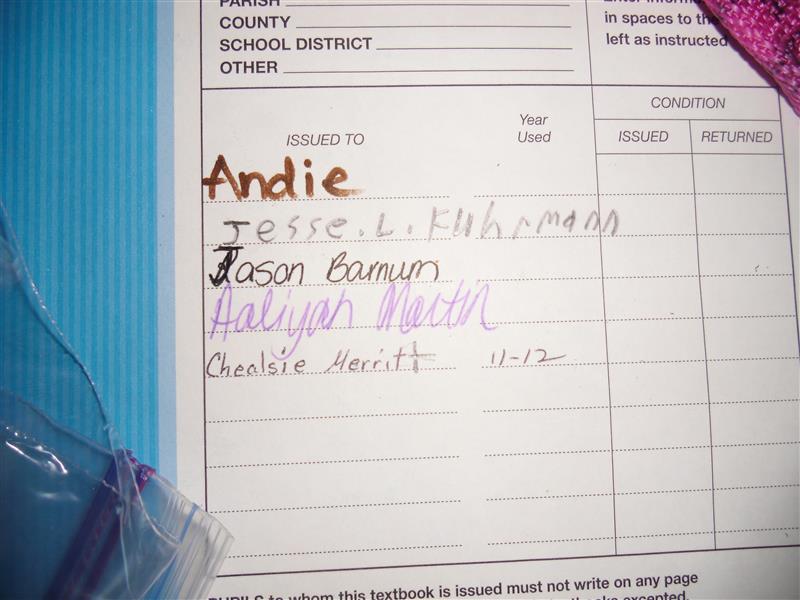 PARISH
COUNTY
SCHOOL DISTRICT
OTHER
in spaces to the
left as instructed
CONDITION
ISSUED TO
Year
Used
ISSUED
RETURNED
Andie
Jesse. L. Kuhrmann
Jason Barnum
Aaliyah Martin
Chealsie Merritt 11-12
PUPILS to whom this textbook is issued must not write on any page